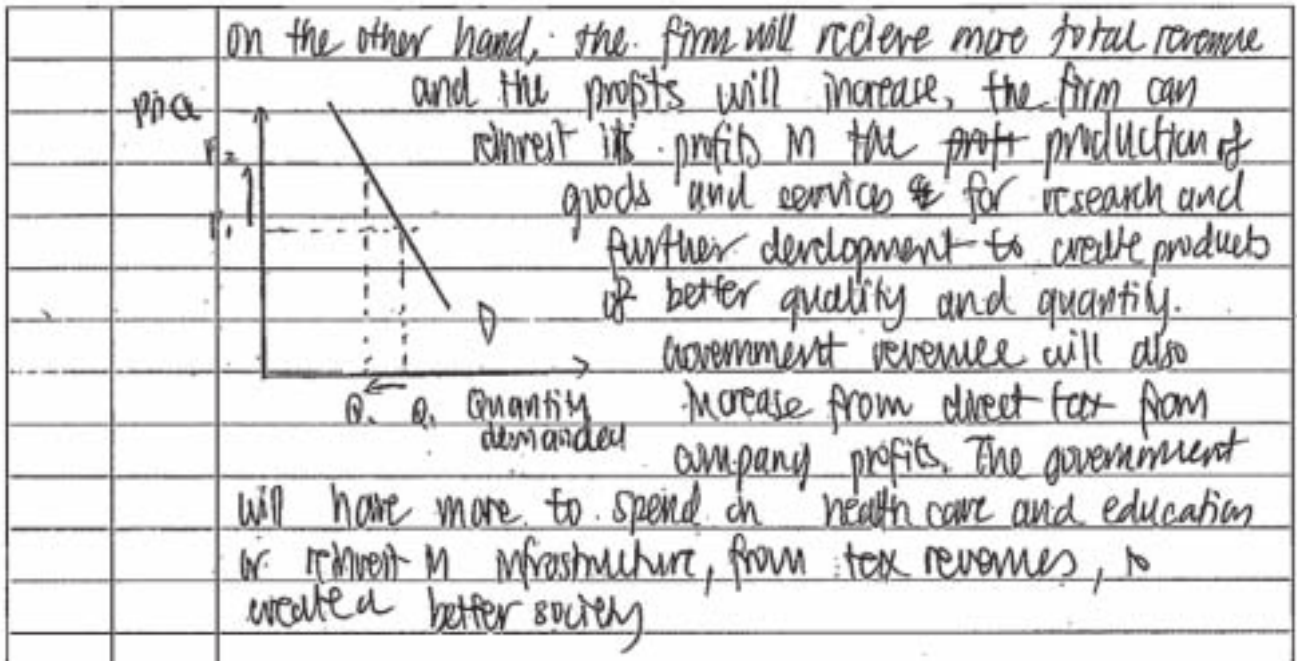 on the other hand, the firm will recieve more total revenue
and the profits will increase, the firm can
reinvest its profits in the proft production of
goods and services for research and
further development to create products
of better quality and quantity.
Government revenue will also
increase from direct tax from
company profits. The government
will have more to spend on health care and education
or reinvest in infrastructure, from tax revenues, to
create a better society
price
P2
P1
D
Q2 Q1 Quantity
demanded